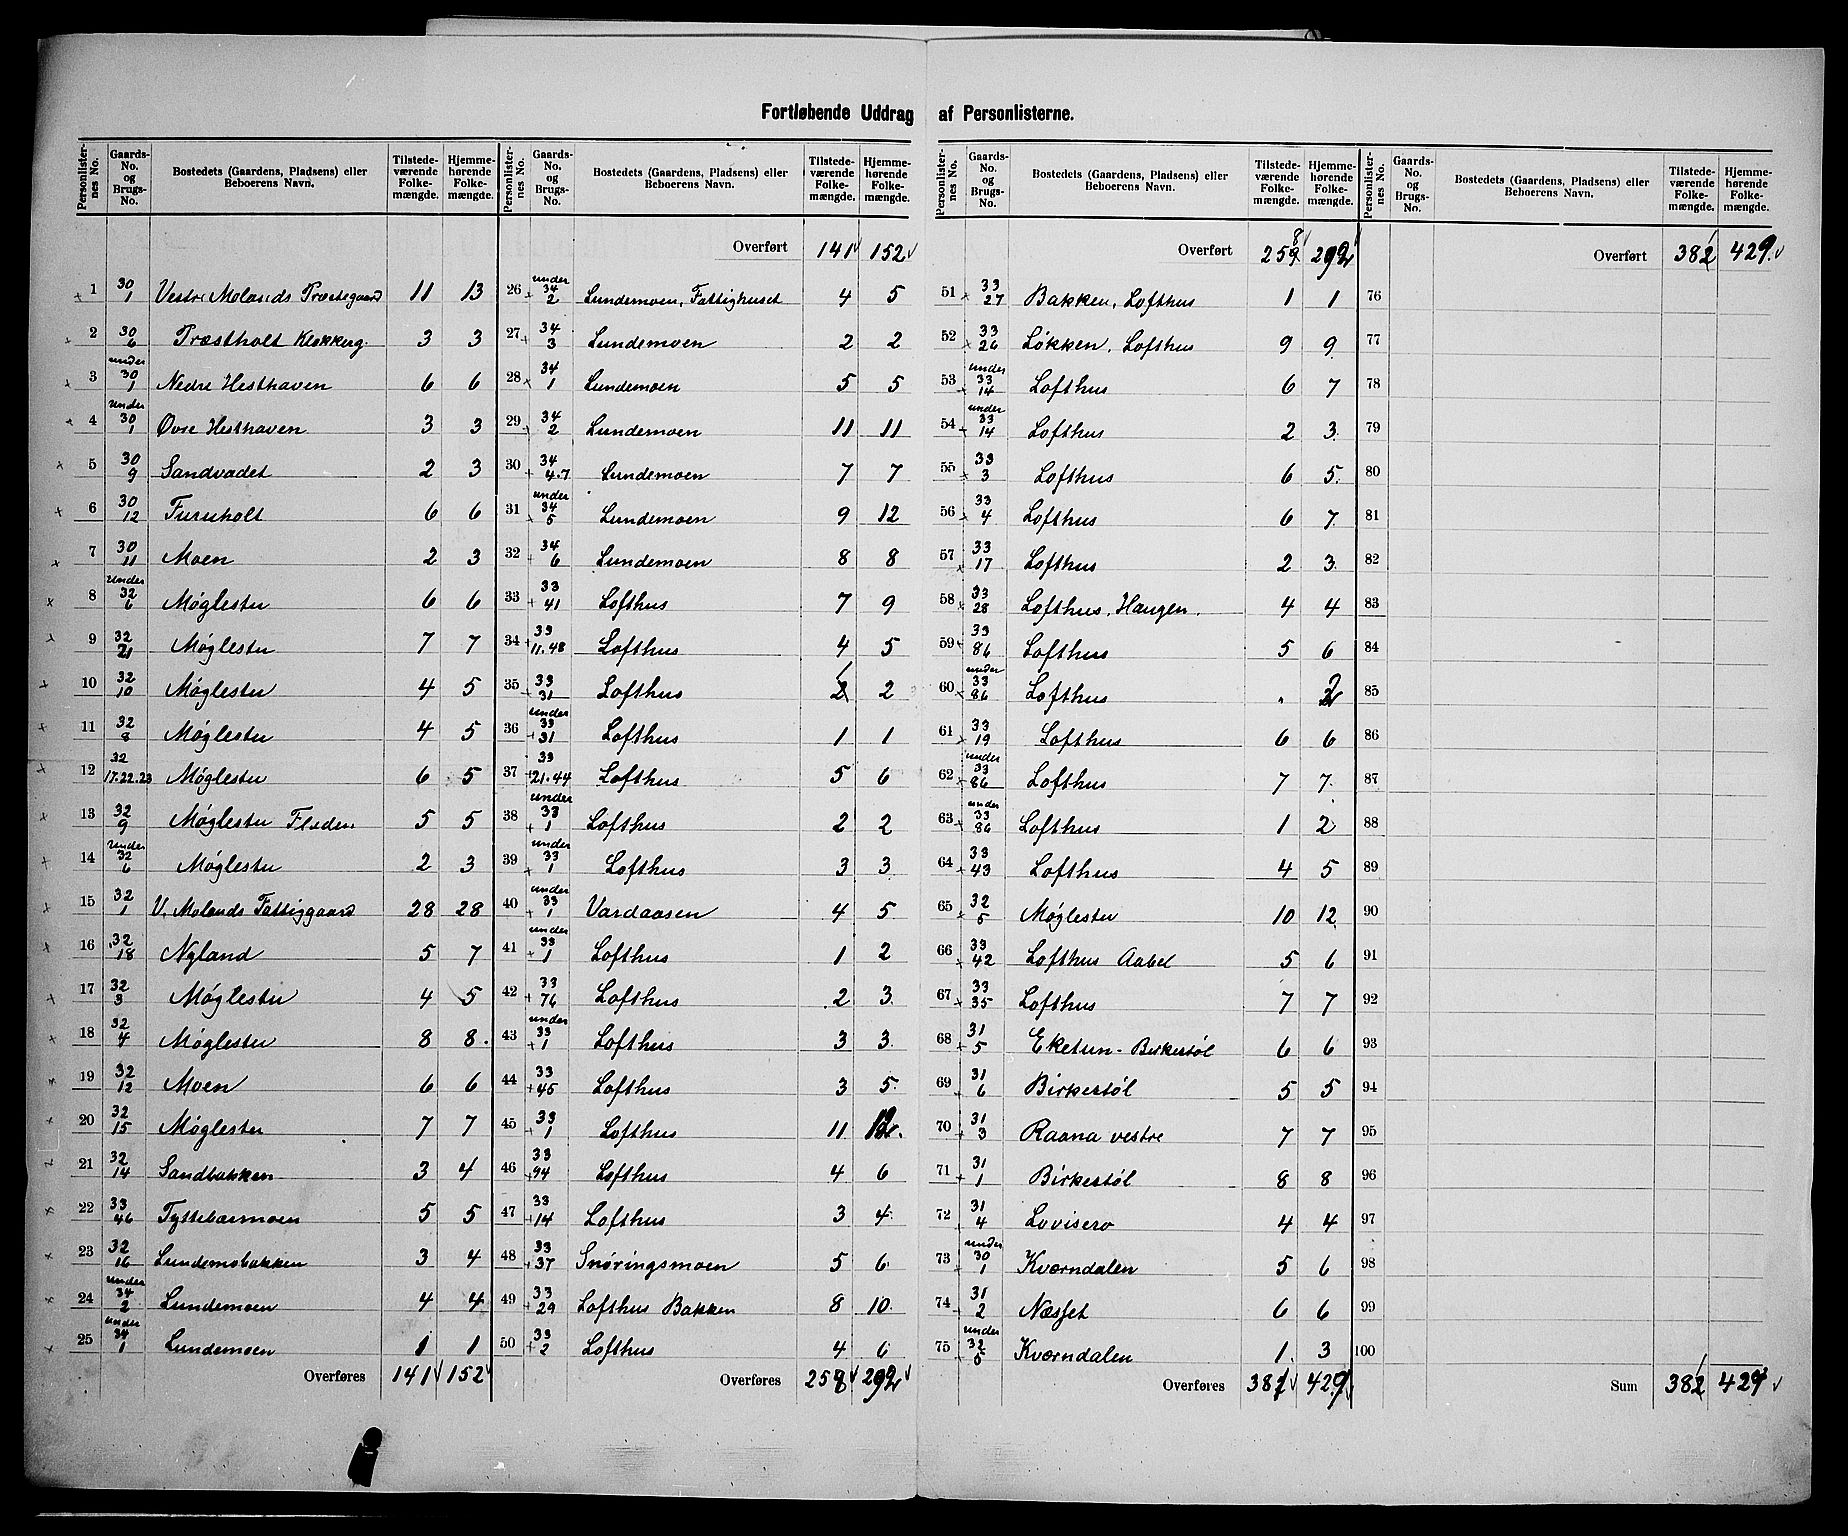 Fortløbende Uddrag af Personlisterne.
Personlister-nes No. | Gaards-No. og Brugs-No. | Bostedets (Gaardens, Pladsens) eller Beboerens Navn. | Tilstede-værende Folke-mængde. | Hjemme-hørende Folke-mængde.
1 30/1 Vestre Molands Præstegaard 11 13
2 30/6 Præstholt Klokkerg. 3 3
3 under 30/1 Nedre Hesthaven 6 6
4 under 30/1 Øvre Hesthaven 3 3
5 30/9 Sandvadet 2 3
6 30/12 Furuholt 6 6
7 30/11 Moen 2 3
8 under 32/6 Møglestu 6 6
9 32/21 Møglestu 7 7
10 32/10 Møglestu 4 5
11 32/8 Møglestu 4 5
12 32/17.22.23 Møglestu 6 5
13 32/9 Møglestu Fladen 5 5
14 under 32/6 Møglestu 2 3
15 32/1 V. Molands Fattiggaard 28 28
16 32/18 Nyland 5 7
17 32/3 Møglestu 4 5
18 32/4 Møglestu 8 8
19 32/12 Moen 6 6
20 32/15 Møglestu 7 7
21 32/14 Sandbakken 3 4
22 33/46 Tyttebærmoen 5 5
23 32/16 Lundemobakken 3 4
24 under 34/2 Lundemoen 4 4
25 under 34/1 Lundemoen 1 1
Overføres 141 152
Personlister-nes No. | Gaards-No. og Brugs-No. | Bostedets (Gaardens, Pladsens) eller Beboerens Navn. | Tilstede-værende Folke-mængde. | Hjemme-hørende Folke-mængde.
Overført 141 152
26 under 34/2 Lundemoen, Fattighuset 4 5
27 34/3 Lundemoen 2 2
28 34/1 Lundemoen 5 5
29 34/2 Lundemoen 11 11
30 34/4.7 Lundemoen 7 7
31 under 34/5 Lundemoen 9 12
32 34/6 Lundemoen 8 8
33 33/41 Lofthus 7 9
34 33/11.48 Lofthus 4 5
35 33/31 Lofthus 2
36 under 33/31 Lofthus 1 1
37 33/21.44 Lofthus 5 6
38 under 33/1 Lofthus 2 2
39 under 33/1 Lofthus 3 3
40 under 33/1 Vardaasen 4 5
41 under 33/1 Lofthus 1 2
42 33/76 Lofthus 2 3
43 under 33/1 Lofthus 3 3
44 33/45 Lofthus 3 5
45 33/1 Lofthus 11 12
46 33/94 Lofthus 4 6
47 33/14 Lofthus 3 4
48 33/37 Snøringsmoen 5 6
49 33/29 Lofthus Bakken 8 10
50 33/2 Lofthus 4 6
Overføres 258 292
Personlister-nes No. | Gaards-No. og Brugs-No. | Bostedets (Gaardens, Pladsens) eller Beboerens Navn. | Tilstede-værende Folke-mængde. | Hjemme-hørende Folke-mængde.
Overført 258 292
51 33/27 Bakken, Lofthus 1 1
52 33/26 Løkken, Lofthus 9 9
53 under 33/14 Lofthus 6 7
54 under 33/14 Lofthus 2 3
55 33/3 Lofthus 6 5
56 33/4 Lofthus 6 7
57 33/17 Lofthus 2 3
58 33/28 Lofthus, Haugen. 4 4
59 33/86 Lofthus 5 6
60 under 33/86 Lofthus . 2
61 33/19 Lofthus 6 6
62 under 33/86 Lofthus 7 7
63 under 33/86 Lofthus 1 2
64 33/43 Lofthus 4 5
65 32/5 Møglestu 10 12
66 33/42 Lofthus Aabel 5 6
67 33/35 Lofthus 7 7
68 31/5 Eketun - Birkestøl 6 6
69 31/6 Birkestøl 5 5
70 31/3 Raana vestre 7 7
71 31/1 Birkestøl 8 8
72 31/4 Lovisero 4 4
73 under 30/1 Kværndalen 5 6
74 31/2 Næsset 6 6
75 under 32/5 Kværndalen 1 3
Overføres 381 429
Personlister-nes No. | Gaards-No. og Brugs-No. | Bostedets (Gaardens, Pladsens) eller Beboerens Navn. | Tilstede-værende Folke-mængde. | Hjemme-hørende Folke-mængde.
Overført 381 429
76
77
78
79
80
81
82
83
84
85
86
87
88
89
90
91
92
93
94
95
96
97
98
99
100
Sum 381 429